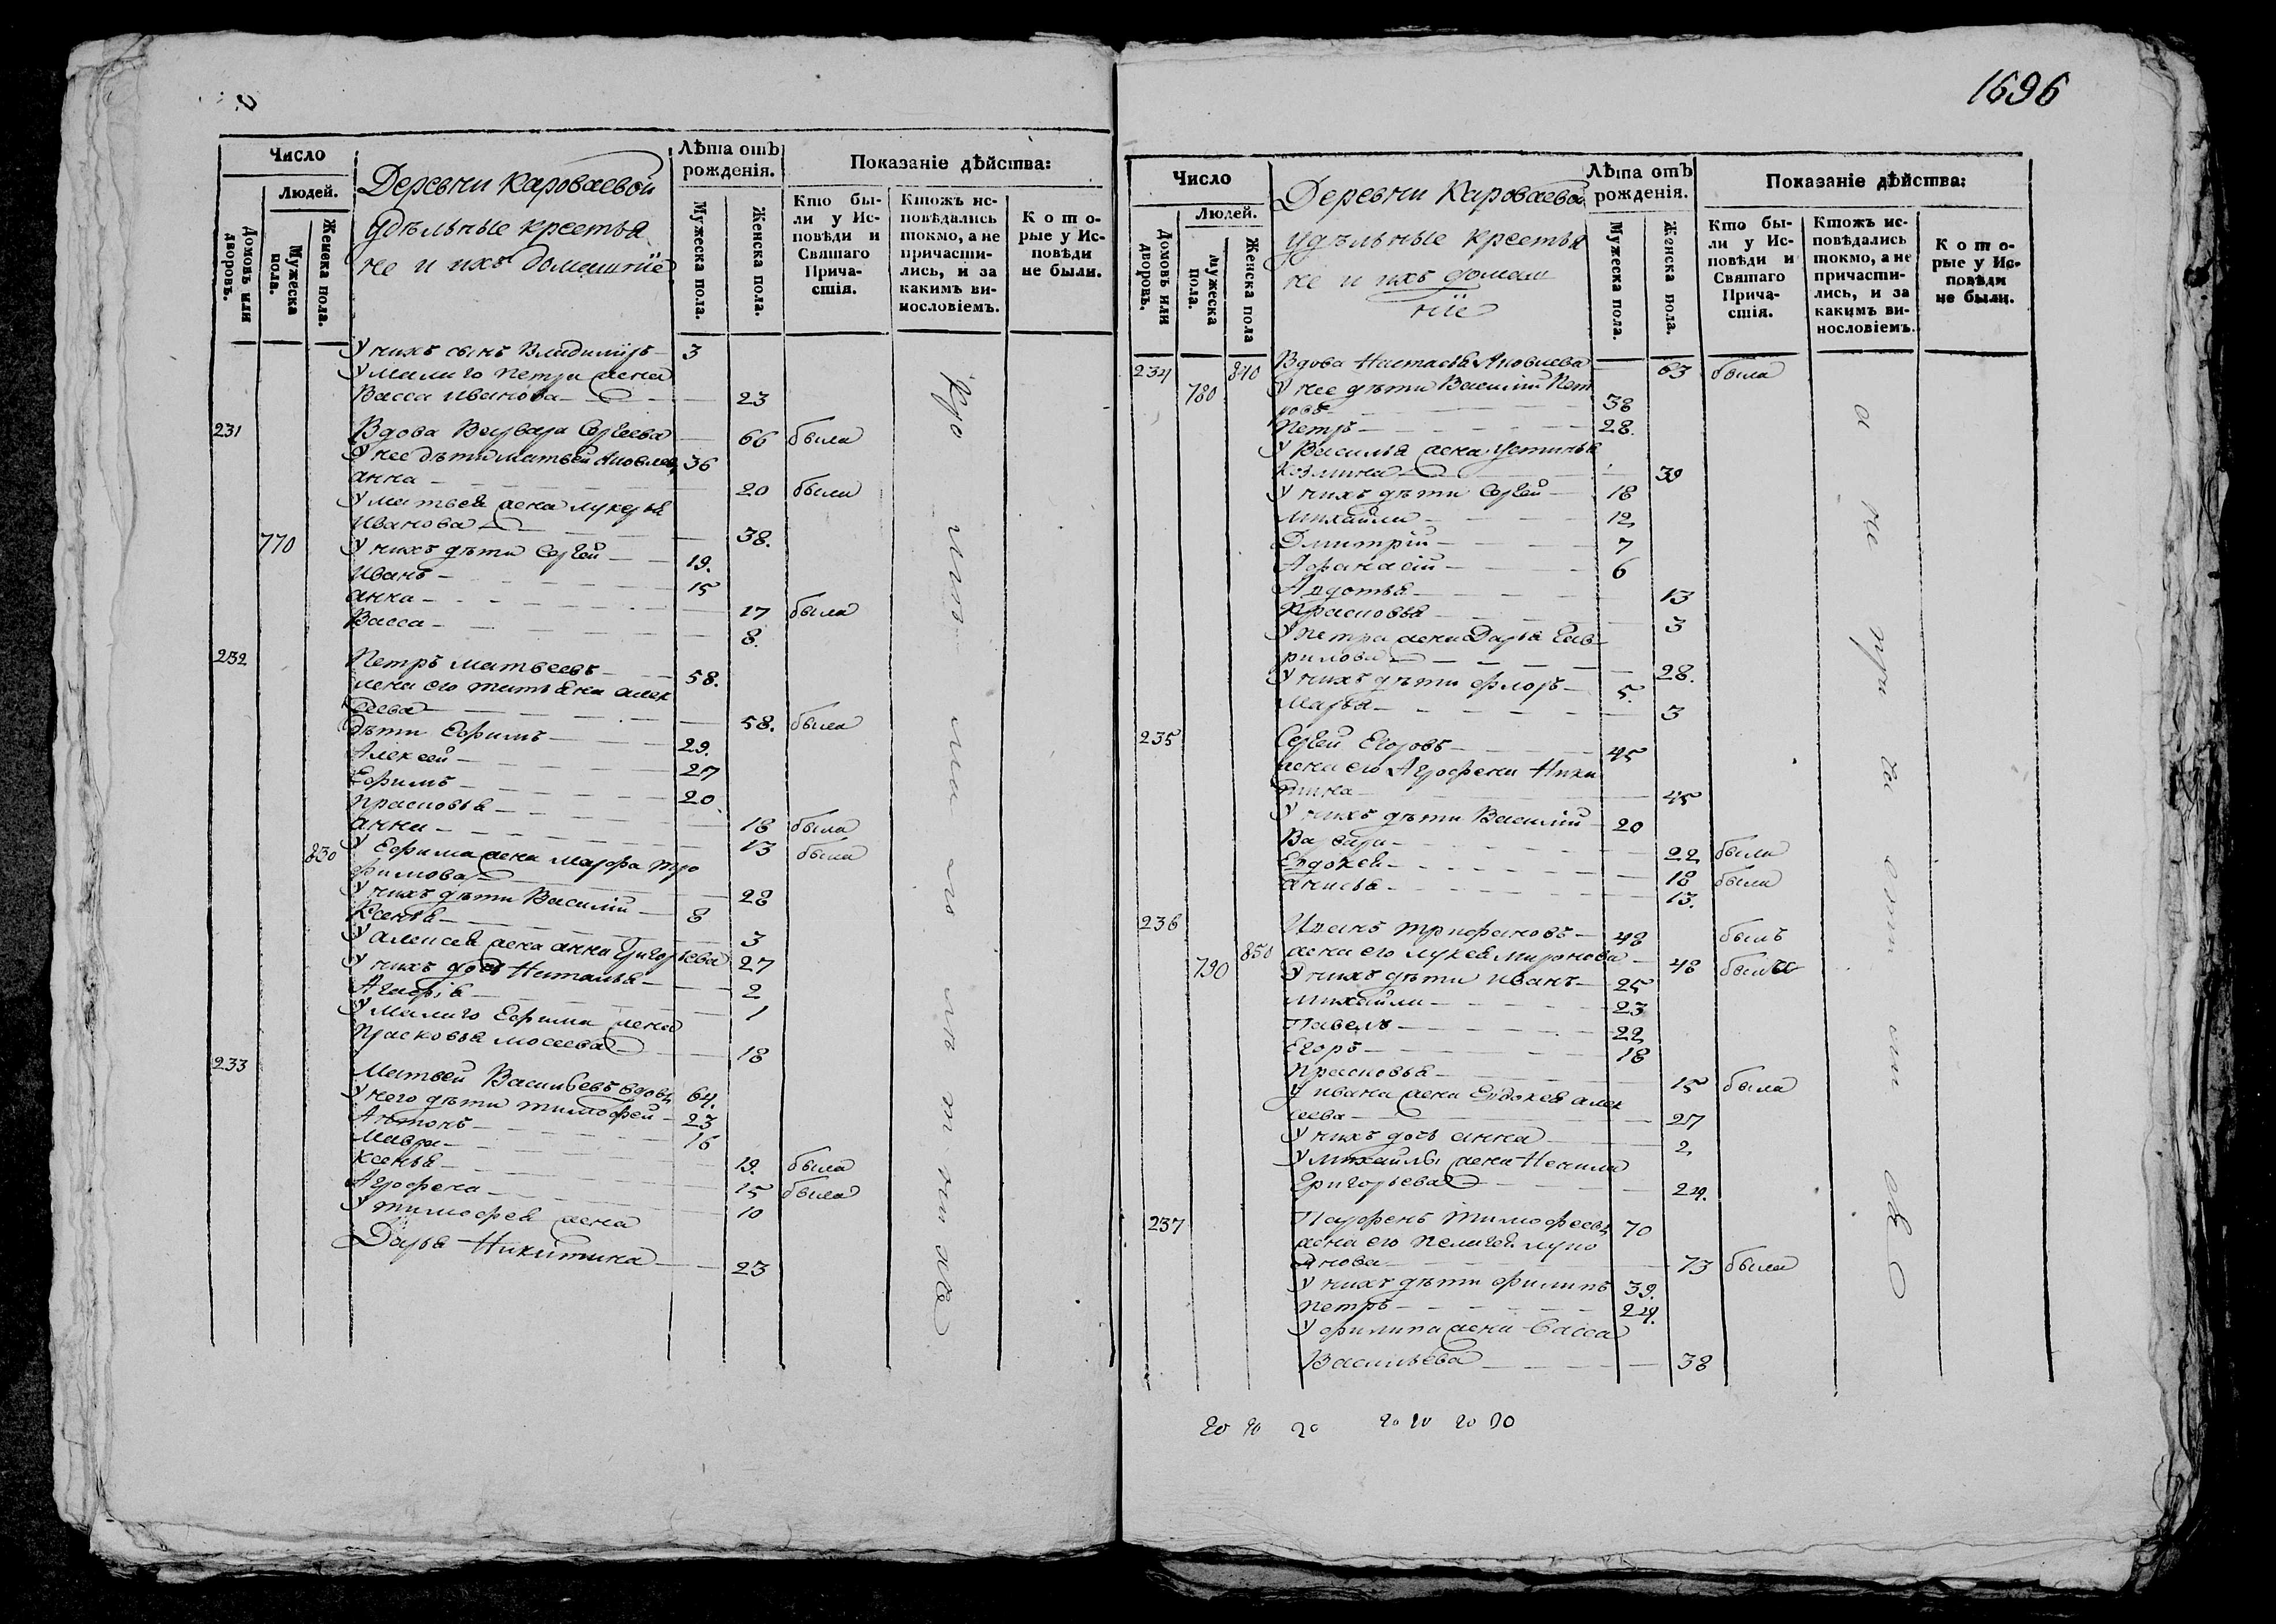 Число
Людей.
Домовъ или дворовъ.
Мужеска пола.
Женска пола.
Деревни Кароваевой
удѣльные крестья
не и ихъ домашніе
Лѣта отъ рожденія.
Мужеска пола.
Женска пола.
Показаніе дѣйства:
Кто бы-
ли у Ис-
повѣди и
Святаго
Прича-
стія.
Ктожъ ис-
повѣдались
токмо, а не
причасти-
лись, и за
какимъ ви-
нословіемъ.
Кото-
рые у Ис-
повѣди
не были.
У нихъ сынъ Владимиръ 3
У малаго Петра жена
Васса Иванова 23
231 Вдова Варвара Сергеева 66 была
У нее дѣти Матвей Яковлев 36
Анна 20 была
У Матвея жена Лукерья
Иванова 38.
770 У нихъ дѣти Сергей 19.
Иванъ 15
Анна 17 была
Васса 8.
232 Петръ Матвеевъ 58.
жена его Татьяна Алек
сеева 58. была
дѣти Ефимъ 29.
Алексей 27
Ефимъ 20
Прасковья 18 была
Анна 13 была
830 У Ефима жена Марфа Тро
фимова 28
У нихъ дѣти Василій 8
Ксенья 3
У Алексея жена Анна Григорьева 27
У нихъ дочь Наталья 2
1
У малаго Ефима жена
Прасковья Мосеева 18
233 Матвей Васильевъ вдовъ 64.
У него дѣти Тимофей 23
Антонъ 16
Мавра 19. была
Ксенья 15 была
Агрофена 10
У Тимофея жена
Дарья Никитина 23
1696
Число
Людей.
Домовъ или дворовъ.
мужеска пола.
Женска пола
Деревни Кароваевой
удѣльные крестья
не и ихъ домаш
ніе
Лѣта отъ рожденія.
Мужеска пола.
Женска пола.
Показаніе дѣйства:
Кто бы-
ли у Ис-
повѣди и
Святаго
Прича-
стія.
Ктожъ ис-
повѣдались
токмо, а не
причасти-
лись, и за
какимъ ви-
нословіемъ.
Кото-
рые у Ис-
повѣди
не были.
234 840 Вдова Настасья Яковлева 63 была
780 У нее дѣти Василій Пет
ровъ 38
Петръ 28.
У Василья жена Устинья
Козмина 39
У нихъ дѣти Сергей 18
Михайла 12
Дмитрій 7
Афанасій 6
Авдотья 13
Прасковья 3
У Петра жена Дарья Гав
рилова 28.
У нихъ дѣти Флоръ 5.
Марья 3
235 Сергей Егоровъ 45
жена его Агрофена Ники
тина 45
У нихъ дѣти Василій 20
Варвара 22 была
Евдокея 18 была
Анисья 13.
236 Иванъ Трифановъ 48 былъ
850 жена его Лукея Миронова 48 была
790 У нихъ дѣти Иванъ 25
Михайла 23
Павелъ 22
Егоръ 18
Прасковья 15 была
У Ивана жена Евдокея Алек
сеева 27
У нихъ дочь Анна 2
У Михайлы жена Ненила
Григорьева 24.
237 Парфенъ Тимофеевъ 70
жена его Пелагея Лупо
янова 73 была
У нихъ дѣти Филипъ 39.
Петръ 24.
У Филипа жена Васса
Васильева 38
20 20 20 20 20 20 20